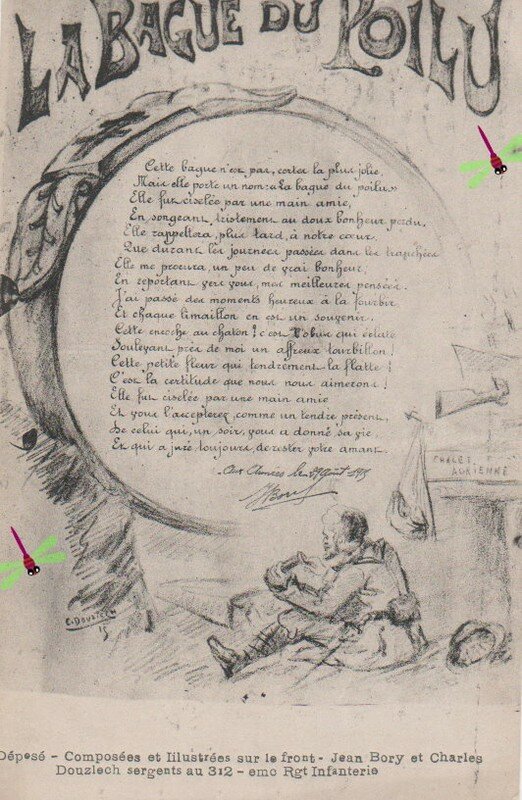 LA BAGUE DU POILU
Cette bague n'est pas, certes la plus jolie,
Mais elle porte un nom: « La bague du poilu »
Elle fut ciselée par une main amie,
En songeant, tristement au doux bonheur perdu,
Elle rappellera, plus tard, à notre cœur,
Que durant les journées passées dans les tranchées
Elle me procura, un peu de vrai bonheur,
En reportant vers vous, mes meilleures pensées.
J'ai passé des moments heureux à la fourbir
Et chaque limaillon en est un souvenir.
Cette encoche, au chaton! c'est l'obus qui éclate
Soulevant près de moi un affreux tourbillon!
Cette petite fleur qui tendrement la flatte!
C'est la certitude que nous nous aimerons!
Elle fut ciselée par une main amie
Et vous l'accepterez, comme un tendre présent,
De celui qui, un soir, vous a donné sa vie
Et qui a juré, toujours, de rester votre amant.
Aux Armées le Août 1915
JBory
CHALET
ADRIENNE
C. DOUZLECH
15
Déposé - Composées et Illustrées sur le front - Jean Bory et Charles
Douzlech sergents au 312 - eme Rgt Infanterie